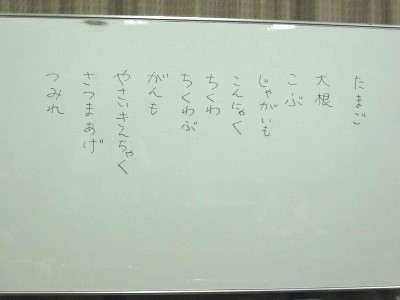 たまご
大根
こぶ
じゃがいも
こんにゃく
ちくわ
ちくわぶ
がんも
やさいきんちゃく
さつまあげ
つみれ